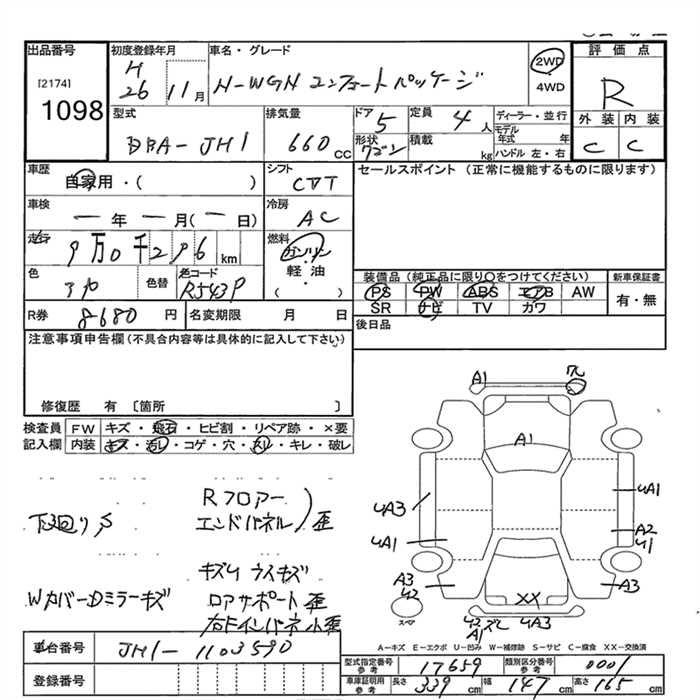 出品番号
[2174]
1098
初度登録年月
H
26 11月
車名・グレード
N-WGN コンフォートパッケージ
2WD
4WD
評価点
R
外装 内装
C C
型式
DBA-JH1
排気量
660 cc
ドア
5
形状
ワゴン
定員
4 人
積載
kg
ディーラー・並行
モデル年式 年
ハンドル 左・右
車歴
自家用・( )
シフト
CVT
セールスポイント (正常に機能するものに限ります)
車検
ー年ー月(ー日)
冷房
AC
走行
9万0千296 km
燃料
ガソリン
軽油
( ・ )
色
色替
色コード
R543P
装備品(純正品に限り○をつけてください)
PS PW ABS エアB AW
SR ナビ TV カワ
新車保証書
有・無
R券 8680円
名変期限 月 日
後日品
注意事項申告欄(不具合内容等は具体的に記入して下さい)
修復歴 有 〔箇所 〕
検査員記入欄
FW キズ・飛石・ヒビ割・リペア跡・×要
内装 キズ・汚レ・コゲ・穴・スレ・キレ・破レ
下回りS
Rフロアー
エンドパネル 歪
WカバーDミラーキズ
キズU ウスキズ
ロアサポート歪
右Fインパネ小歪
A1
A1
UA3
UA1
A3
U2
スペア
UA1
A2
U1
A3
XX
UA3
A1
A-キズ E-エクボ U-凹み W-補修跡 S-サビ C-腐食 XX-交換済
車台番号
JH1-1103590
登録番号
型式指定番号
参考
17659
類別区分番号
参考
0001
車庫証明用
参考
長さ 339 cm
幅 147 cm
高さ 165 cm